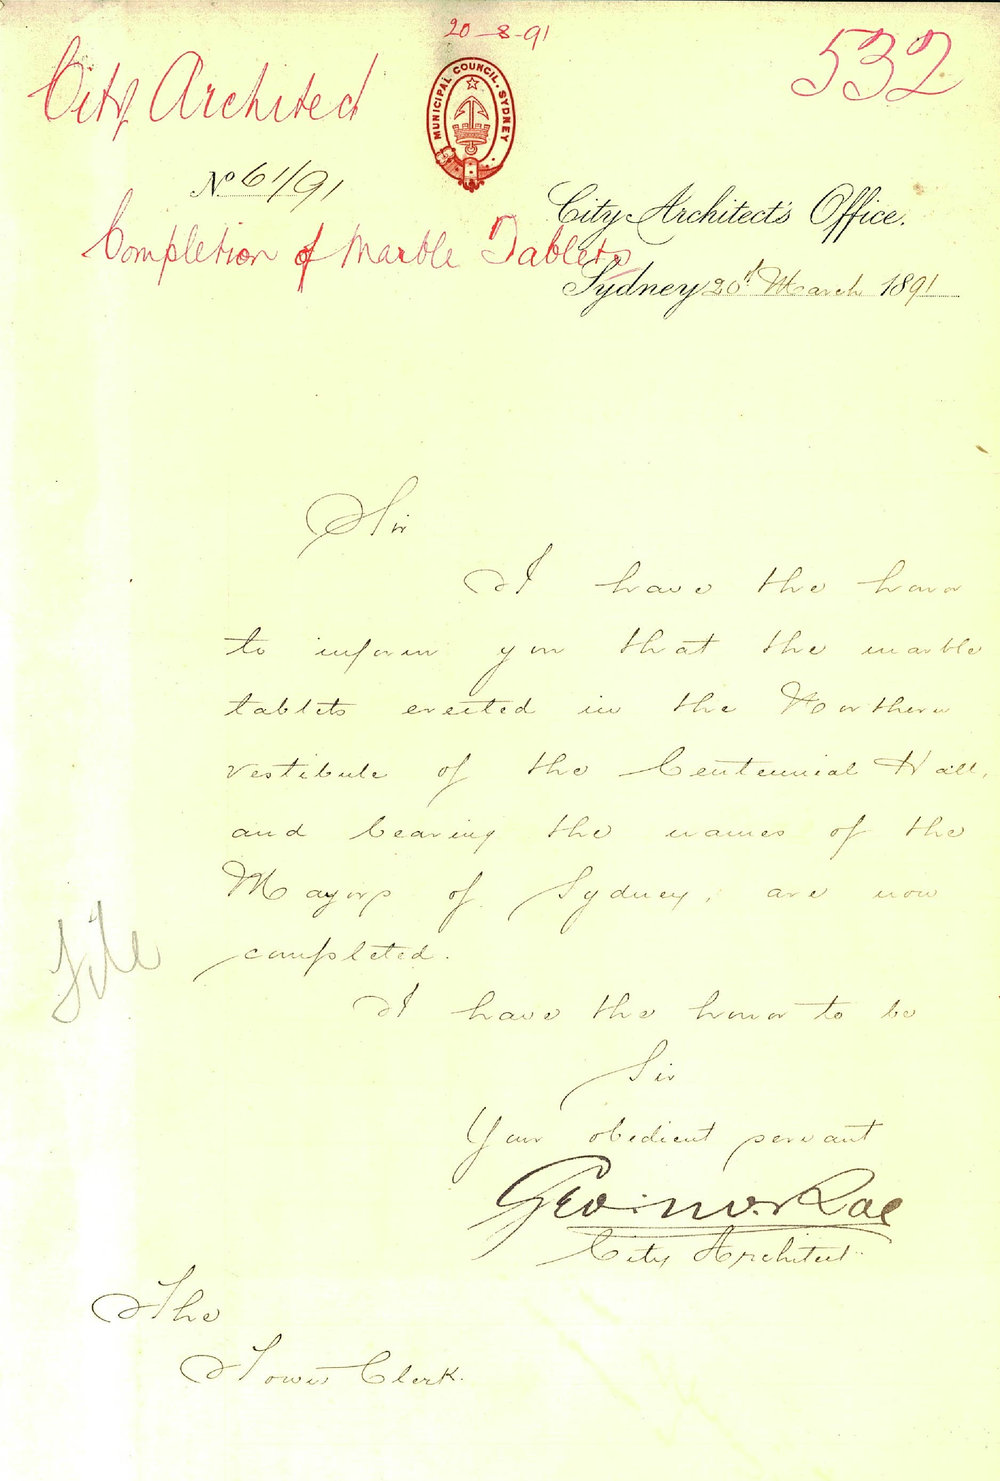 20-8-91
532
City Architect
MUNICIPAL COUNCIL. SYDNEY
No 61/91
City Architect's Office.
Completion of Marble Tablets
Sydney 20th March 1891
Sir
I have the honor
to inform you that the marble
tablets erected in the Northern
vestibule of the Centennial Hall,
and bearing the names of the
Mayors of Sydney, are now
completed.
File
I have the honor to be
Sir
Your obedient servant
Geo: McRae
City Architect.
The
Town Clerk.